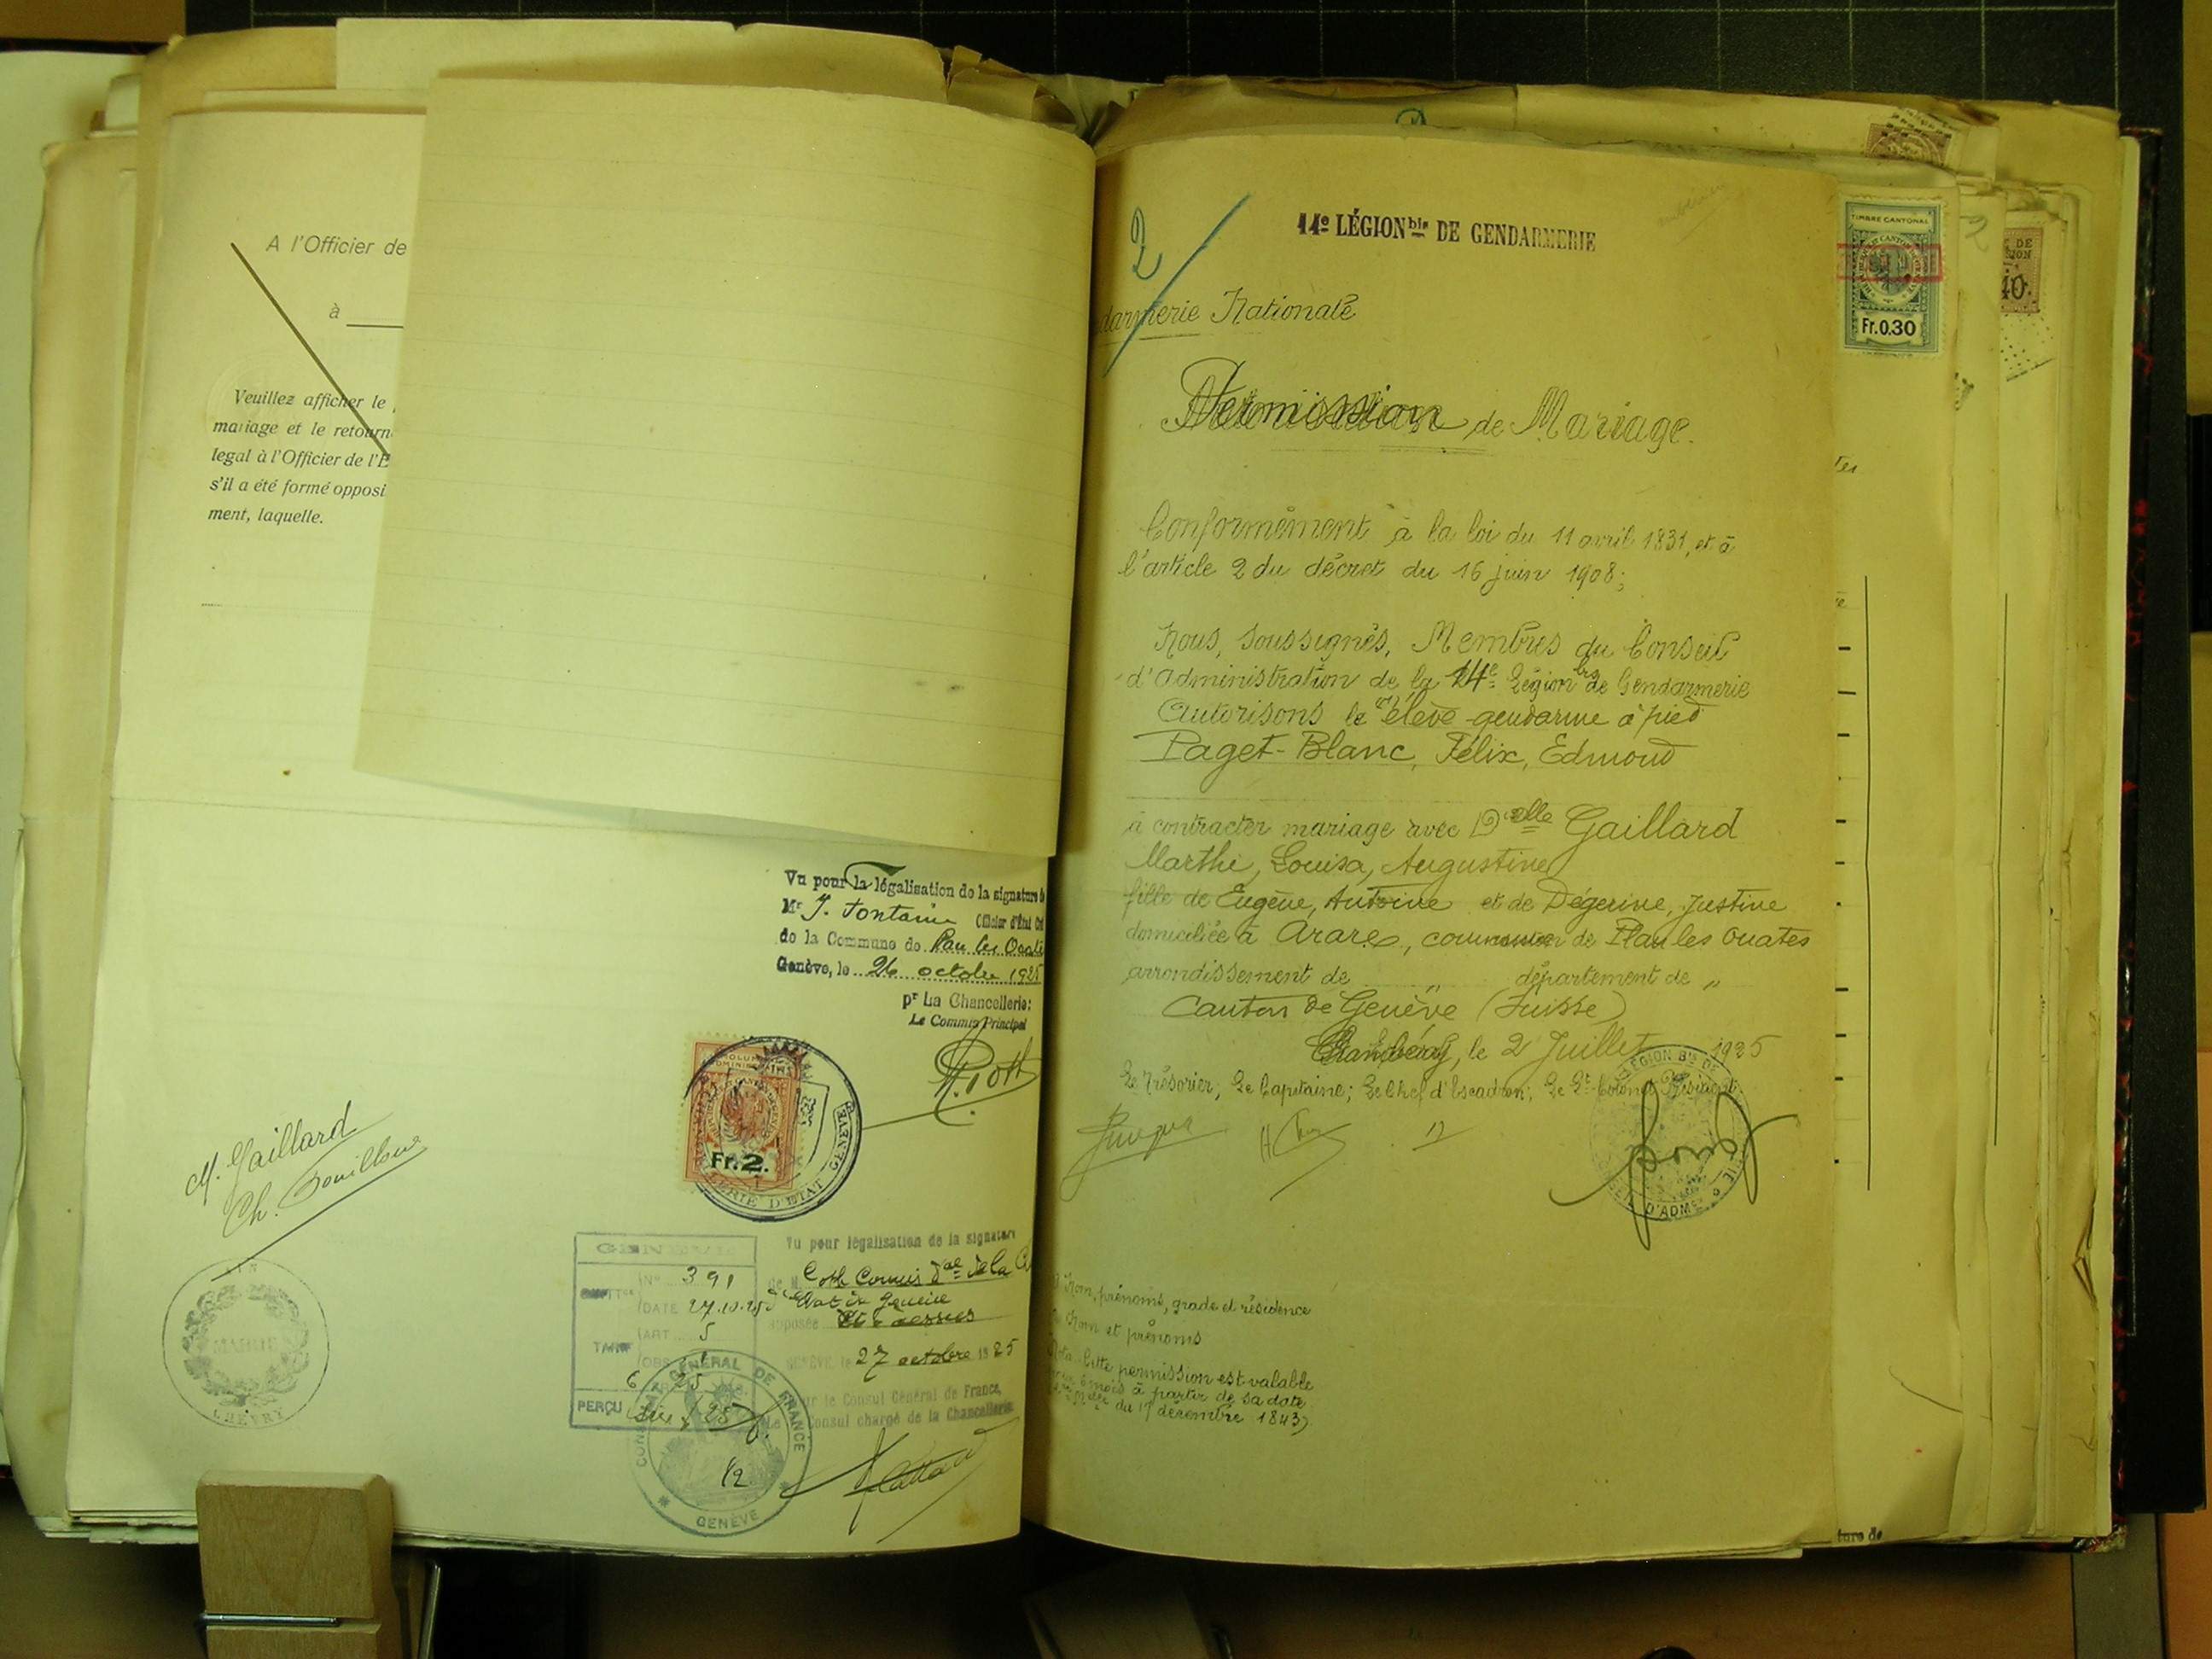 A l'Officier de
à
Veuillez afficher le
mariage et le retourn
legal à l'Officier de l'E
s'il a été formé opposi
ment, laquelle.
Vu pour la légalisation de la signature de
Mr J. Fontaine Officier d'Etat Civil
de la Commune de Plan les Ouates
Genève, le 26 octobre 1925
pr La Chancellerie:
Le Commis Principal
Fr. 2.
GENEVE
M. Gaillard
MAIRIE
GENEVE
No 391
DATE 27.10.25
ART 5
TARIF
PERÇU
Vu pour légalisation de la signature
Genève
apposée ci-dessus
GENÈVE, le 27 octobre 1925
Pour le Consul Général de France,
Le Consul chargé de la Chancellerie
CONSULAT GÉNÉRAL DE FRANCE
GENÈVE
12
2
14e LÉGION bis DE GENDARMERIE
darmerie Nationale
Permission de Mariage.
Conformément à la loi du 11 avril 1831, et à
l'article 2 du décret du 16 juin 1908;
Nous, soussignés, Membres du Conseil
d'Administration de la 14e Légion bis de Gendarmerie
Autorisons le (1) élève-gendarme à pied
Paget-Blanc, Félix, Edmond
à contracter mariage avec Delle Gaillard
Marthe, Louisa, Augustine
fille de Eugène, Antoine et de Dégerine, Justine
domiciliée à Arare, commune de Plan les Ouates
arrondissement de " département de "
Canton de Genève (Suisse)
Chambéry, le 2 Juillet 1925
Le Trésorier; Le Capitaine; Le Chef d'Escadron; Le Lt-Colonel Président;
Nom, prénoms, grade et résidence
Nom et prénoms
Nota. Cette permission est valable
pour 6 mois à partir de sa date
du 17 décembre 1843)
TIMBRE CANTONAL
Fr. 0.30
2
40.
ture de